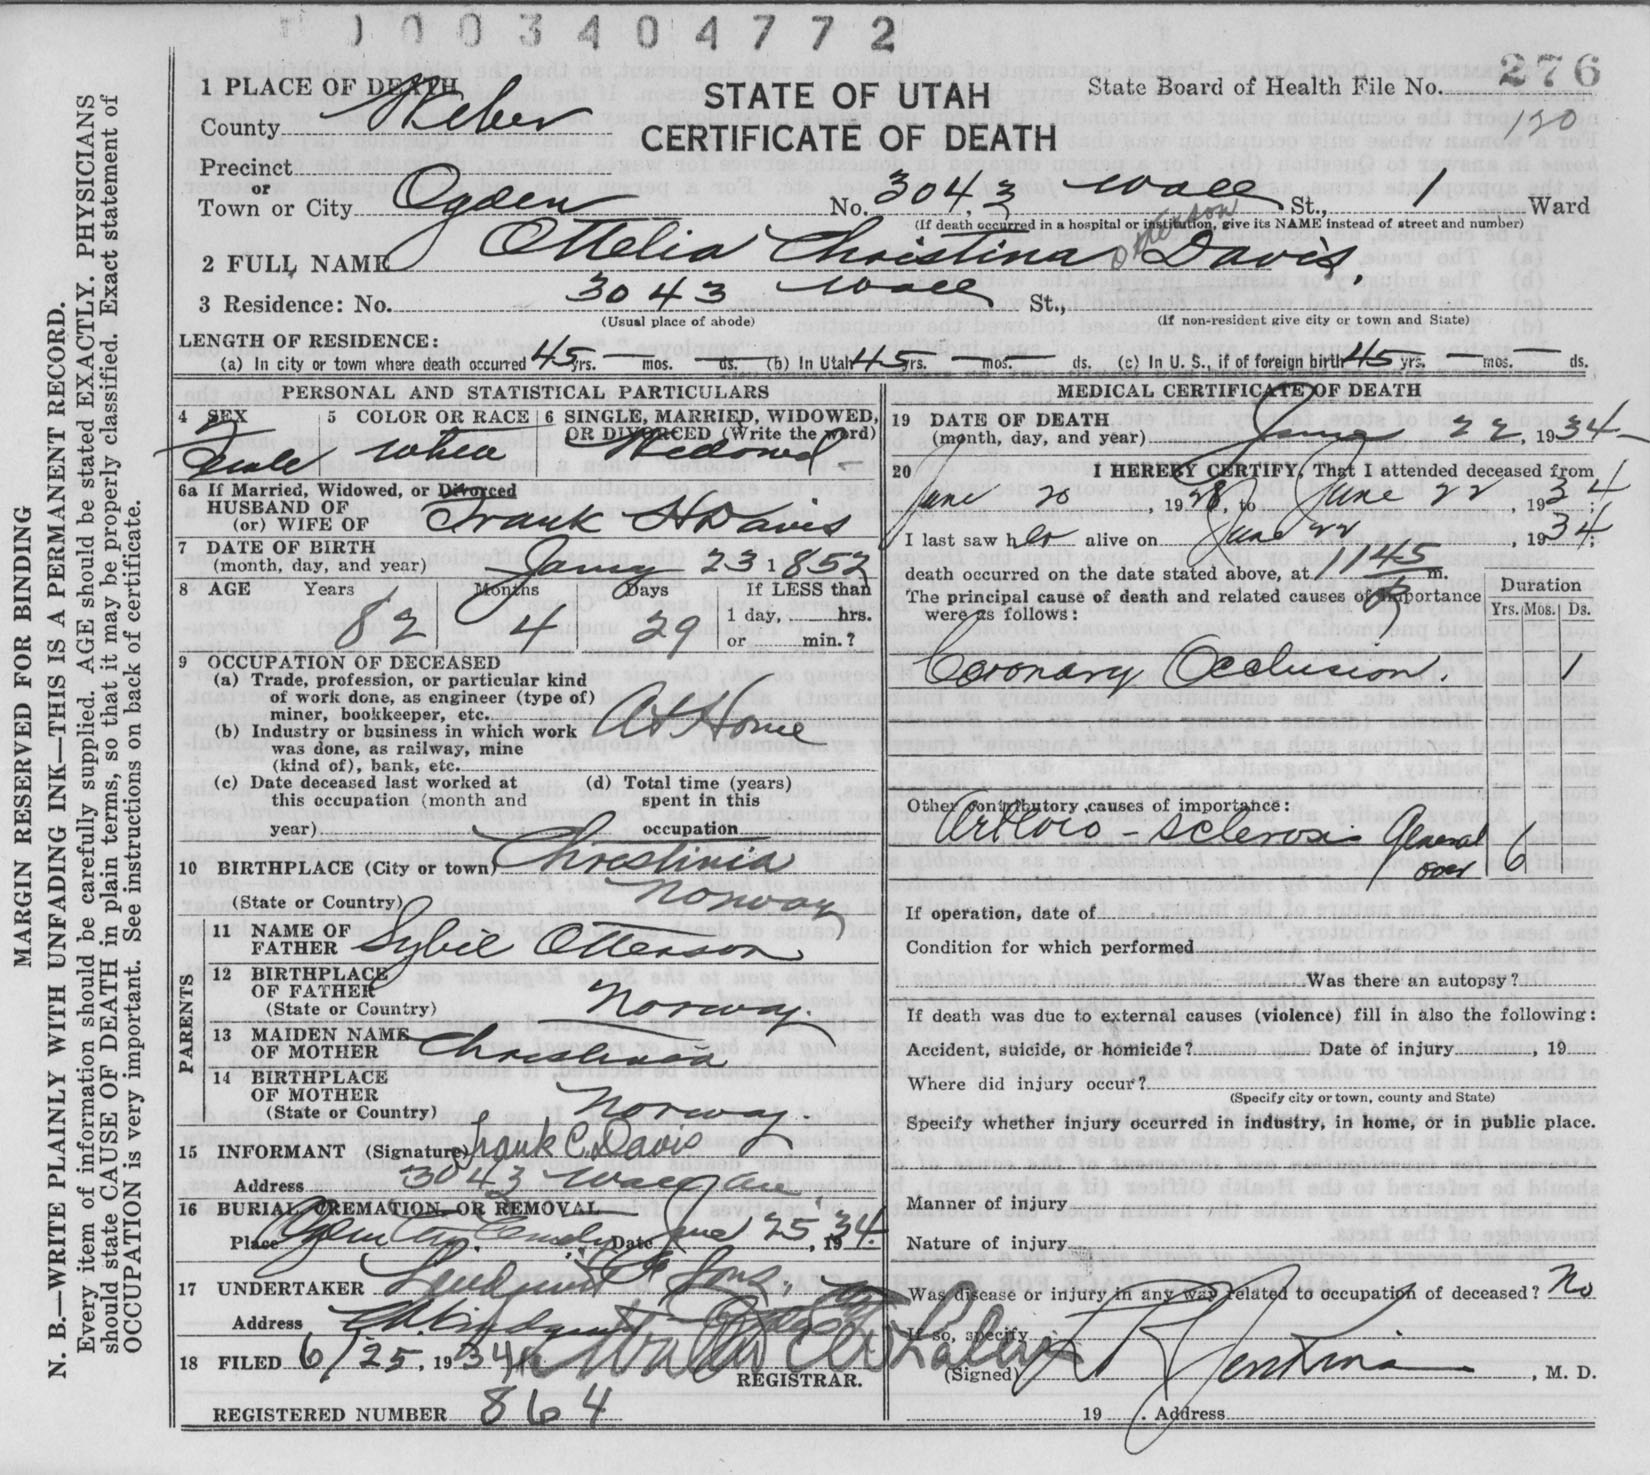 1003404772
276
1 PLACE OF DEATH
STATE OF UTAH
State Board of Health File No.
120
County Weber
CERTIFICATE OF DEATH
Precinct
or
Town or City Ogden No. 3043 Wall St., 1 Ward
(If death occurred in a hospital or institution, give its NAME instead of street and number)
Otterson
2 FULL NAME Ottelia Christina Davis
3 Residence: No. 3043 Wall St.,
(Usual place of abode) (If non-resident give city or town and State)
LENGTH OF RESIDENCE:
(a) In city or town where death occurred 45 yrs. — mos. — ds. (b) In Utah 45 yrs. — mos. — ds. (c) In U. S., if of foreign birth 45 yrs. — mos. — ds.
PERSONAL AND STATISTICAL PARTICULARS
4 SEX 5 COLOR OR RACE 6 SINGLE, MARRIED, WIDOWED,
OR DIVORCED (Write the word)
Female White Widowed
6a If Married, Widowed, or Divorced
HUSBAND OF
(or) WIFE OF Frank H Davis
7 DATE OF BIRTH
(month, day, and year) 23 1852
8 AGE Years Months Days If LESS than
1 day, hrs.
82 4 29 or min.?
9 OCCUPATION OF DECEASED
(a) Trade, profession, or particular kind
of work done, as engineer (type of)
miner, bookkeeper, etc. At Home
(b) Industry or business in which work
was done, as railway, mine
(kind of), bank, etc.
(c) Date deceased last worked at (d) Total time (years)
this occupation (month and spent in this
year) occupation
10 BIRTHPLACE (City or town) Christinia
(State or Country) Norway
PARENTS
11 NAME OF
FATHER Otterson
12 BIRTHPLACE
OF FATHER
(State or Country) Norway.
13 MAIDEN NAME
OF MOTHER Christinia
14 BIRTHPLACE
OF MOTHER
(State or Country) Norway.
15 INFORMANT (Signature) Frank C. Davis
Address 3043 Wall Ave
16 BURIAL, CREMATION, OR REMOVAL
Place Ogden City Date June 25, 1934.
17 UNDERTAKER Lindquist & Sons,
Address
18 FILED 6/25, 1934
REGISTRAR.
REGISTERED NUMBER 864
MEDICAL CERTIFICATE OF DEATH
19 DATE OF DEATH
(month, day, and year) June 22, 1934
20 I HEREBY CERTIFY, That I attended deceased from
June 20, 1928, to June 22, 1934;
I last saw her alive on June 22, 1934;
death occurred on the date stated above, at 1145 m.
The principal cause of death and related causes of importance
were as follows:
Duration
Yrs. Mos. Ds.
Coronary Occlusion. 1
Other contributory causes of importance:
Arterio-sclerosis General 6
over
If operation, date of
Condition for which performed
Was there an autopsy?
If death was due to external causes (violence) fill in also the following:
Accident, suicide, or homicide? Date of injury , 19
Where did injury occur?
(Specify city or town, county and State)
Specify whether injury occurred in industry, in home, or in public place.
Manner of injury
Nature of injury
Was disease or injury in any way related to occupation of deceased? No
If so, specify
(Signed) Jenkins, M. D.
19 . Address
MARGIN RESERVED FOR BINDING
N. B.—WRITE PLAINLY WITH UNFADING INK—THIS IS A PERMANENT RECORD.
Every item of information should be carefully supplied. AGE should be stated EXACTLY. PHYSICIANS
should state CAUSE OF DEATH in plain terms, so that it may be properly classified. Exact statement of
OCCUPATION is very important. See instructions on back of certificate.